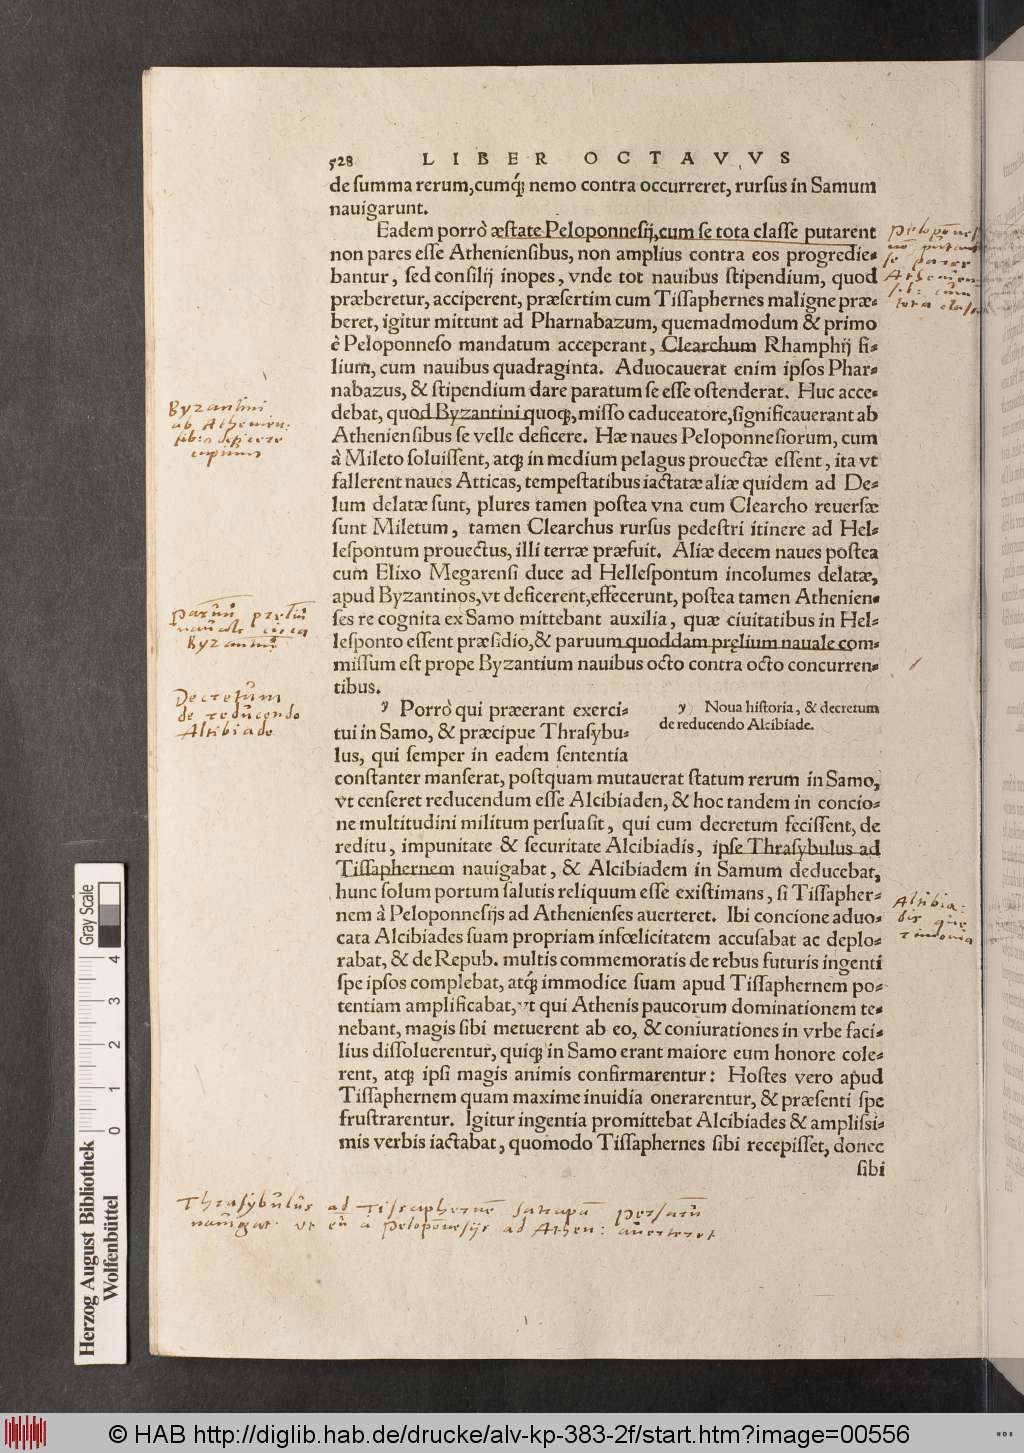 528 LIBER OCTAVVS
de ſumma rerum, cumq́; nemo contra occurreret, rurſus in Samum
nauigarunt.
Eadem porrò æſtate Peloponneſij, cum ſe tota claſſe putarent
non pares eſſe Athenienſibus, non amplius contra eos progredie-
bantur, ſed conſilij inopes, vnde tot nauibus ſtipendium, quod
præberetur, acciperent, præſertim cum Tiſſaphernes maligne præ-
beret, igitur mittunt ad Pharnabazum, quemadmodum & primo
è Peloponneſo mandatum acceperant, Clearchum Rhamphij fi-
lium, cum nauibus quadraginta. Aduocauerat enim ipſos Phar-
nabazus, & ſtipendium dare paratum ſe eſſe oſtenderat. Huc acce-
debat, quod Byzantini quoq;, miſſo caduceatore, ſignificauerant ab
Athenienſibus ſe velle deficere. Hæ naues Peloponneſiorum, cum
à Mileto ſoluiſſent, atq; in medium pelagus prouectæ eſſent, ita vt
fallerent naues Atticas, tempeſtatibus iactatæ aliæ quidem ad De-
lum delatæ ſunt, plures tamen poſtea vna cum Clearcho reuerſæ
ſunt Miletum, tamen Clearchus rurſus pedeſtri itinere ad Hel-
leſpontum prouectus, illi terræ præfuit. Aliæ decem naues poſtea
cum Elixo Megarenſi duce ad Helleſpontum incolumes delatæ,
apud Byzantinos, vt deficerent, effecerunt, poſtea tamen Athenien-
ſes re cognita ex Samo mittebant auxilia, quæ ciuitatibus in Hel-
leſponto eſſent præſidio, & paruum quoddam pręlium nauale com-
miſſum eſt prope Byzantium nauibus octo contra octo concurren-
tibus.
y Porrò qui præerant exerci-
tui in Samo, & præcipue Thraſybu-
lus, qui ſemper in eadem ſententia
y Noua hiſtoria, & decretum
de reducendo Alcibiade.
conſtanter manſerat, poſtquam mutauerat ſtatum rerum in Samo,
vt cenſeret reducendum eſſe Alcibiaden, & hoc tandem in concio-
ne multitudini militum perſuaſit, qui cum decretum feciſſent, de
reditu, impunitate & ſecuritate Alcibiadis, ipſe Thraſybulus ad
Tiſſaphernem nauigabat, & Alcibiadem in Samum deducebat,
hunc ſolum portum ſalutis reliquum eſſe exiſtimans, ſi Tiſſapher-
nem à Peloponneſijs ad Athenienſes auerteret. Ibi concione aduo-
cata Alcibiades ſuam propriam infœlicitatem accuſabat ac deplo-
rabat, & de Repub. multis commemoratis de rebus futuris ingenti
ſpe ipſos complebat, atq́; immodice ſuam apud Tiſſaphernem po-
tentiam amplificabat, vt qui Athenis paucorum dominationem te-
nebant, magis ſibi metuerent ab eo, & coniurationes in vrbe faci-
lius diſſoluerentur, quiq; in Samo erant maiore eum honore cole-
rent, atq; ipſi magis animis confirmarentur: Hoſtes vero apud
Tiſſaphernem quam maxime inuidia onerarentur, & præſenti ſpe
fruſtrarentur. Igitur ingentia promittebat Alcibiades & ampliſsi-
mis verbis iactabat, quomodo Tiſſaphernes ſibi recepiſſet, donec
ſibi
Byzantini
ab Athenien:
sib: deficere
cupiunt
Paruũ pręliũ
nauale circa
Byzantiũ
Decretum
de reducendo
Altibiade
Peloponnes
nõ putant
se pares
Athenien-
sib: cum
tota class
Altibia-
dis
Thrasybulus ad Tissaphernẽ satrapã Persarũ
nauigat vt eũ à Peloponnesijs ad Athen: auerteret
Herzog August Bibliothek
Wolfenbüttel
Gray Scale
0 1 2 3 4
© HAB http://diglib.hab.de/drucke/alv-kp-383-2f/start.htm?image=00556